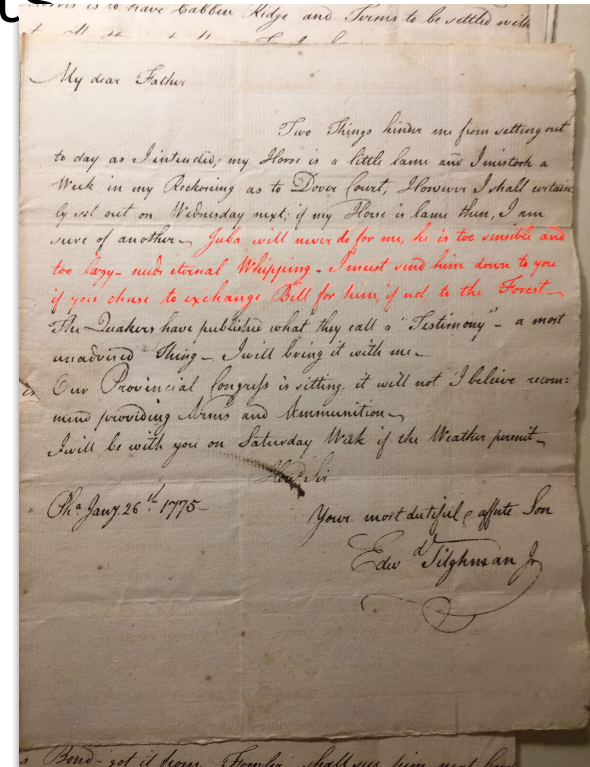 is to have Cabbin Ridge and Terms to be settled with
My dear Father
Two Things hinder me from setting out
to day as I intended; my Horse is a little lame and I mistook a
Week in my Reckoning as to Dover Court, However I shall certain
ly set out on Wednesday next; if my Horse is lame then, I am
sure of another – Juba will never do for me, he is too sensible and
too lazy – needs eternal Whipping – I must send him down to you
if you chuse to exchange Bill for him, if not to the Forest –
The Quakers have publishd what they call a "Testimony" – a most
unadvised Thing – I will bring it with me –
Our Provincial Congress is sitting, it will not I believe recom=
mend providing Arms and Ammunition –
I will be with you on Saturday Week if the Weather permit –
Hond Sir
Pha Jany. 26th 1775 –
Your most dutiful & affte Son
Edwd Tilghman Jr
Bond – got it from shall see him next